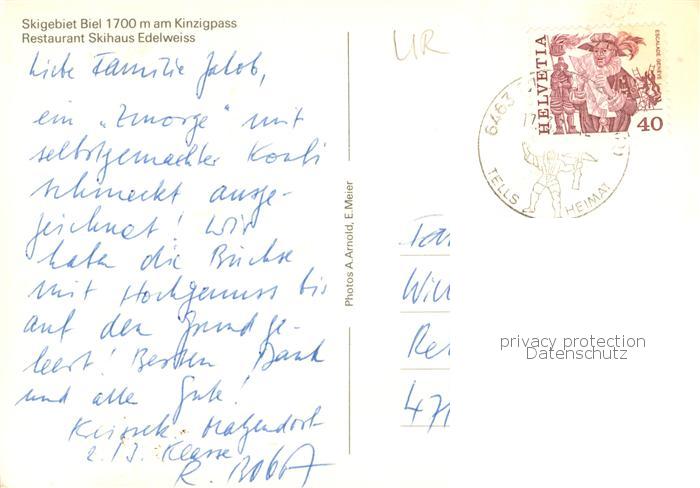 Skigebiet Biel 1700 m am Kinzigpass
Restaurant Skihaus Edelweiss
Liebe Familie Jakob,
ein "Zmorge" mit
selbstgemachter Konfi
schmeckt ausge-
zeichnet! Wir
haben die Büchse
mit Hochgenuss bis
auf den Grund ge-
leert! Besten Dank
und alles Gute!
Matzendorf
2./3. Klasse
R.
Photos A. Arnold, E. Meier
UR
HELVETIA
ESCALADE GENÈVE
40
6463
17.
TELLS HEIMAT
Fam
Will
471
privacy protection
Datenschutz